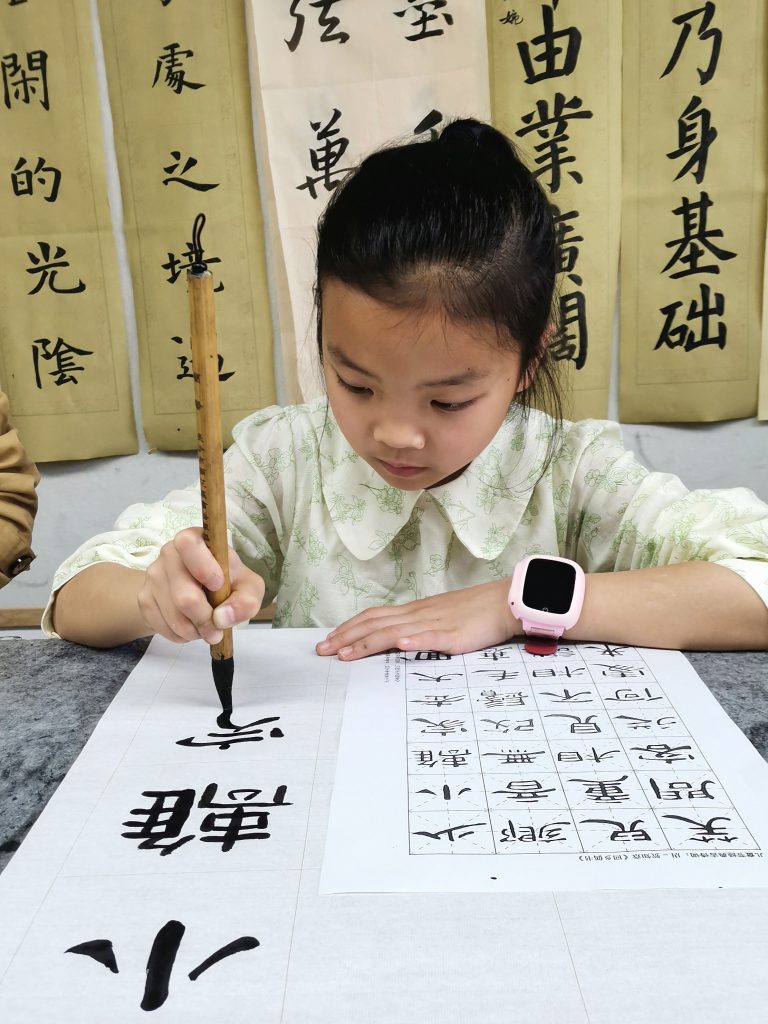 乃身基础
由業廣闊
婉
墨
弦萬
處之境
閑的光陰
小離
少小離家老大回
鄉音無改鬢毛衰
兒童相見不相識
笑問客從何處來